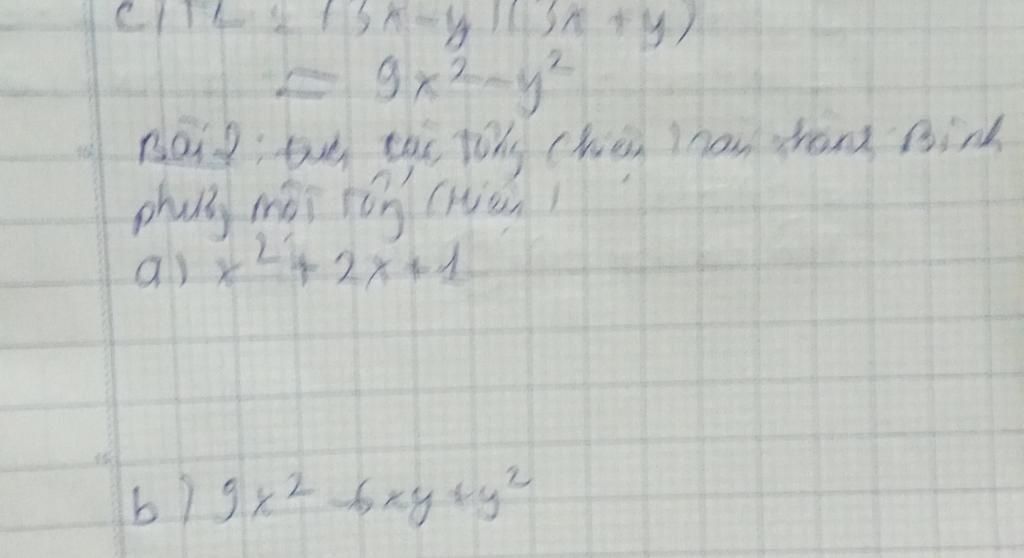 (3x-y)(3x+y)
= 9x² - y²
Bài 2: các tổng (hiệu) sau thành Bình
phương một tổng (Hiệu)
a) x² + 2x + 1
b) 9x² - 6xy + y²